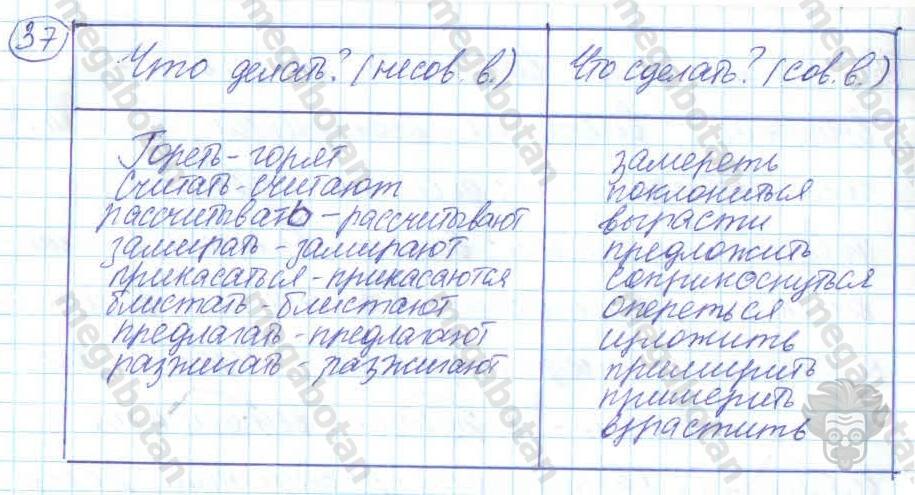 37
Что делать? (несов. в.) Что сделать? (сов. в.)
Гореть - горят
считать - считают
рассчитывать - рассчитывают
замирать - замирают
прикасаться - прикасаются
блистать - блистают
предлагать - предлагают
разжигать - разжигают
замереть
поклониться
вырасти
предложить
соприкоснуться
опереться
изложить
примирить
примерить
взрастить
megabotan